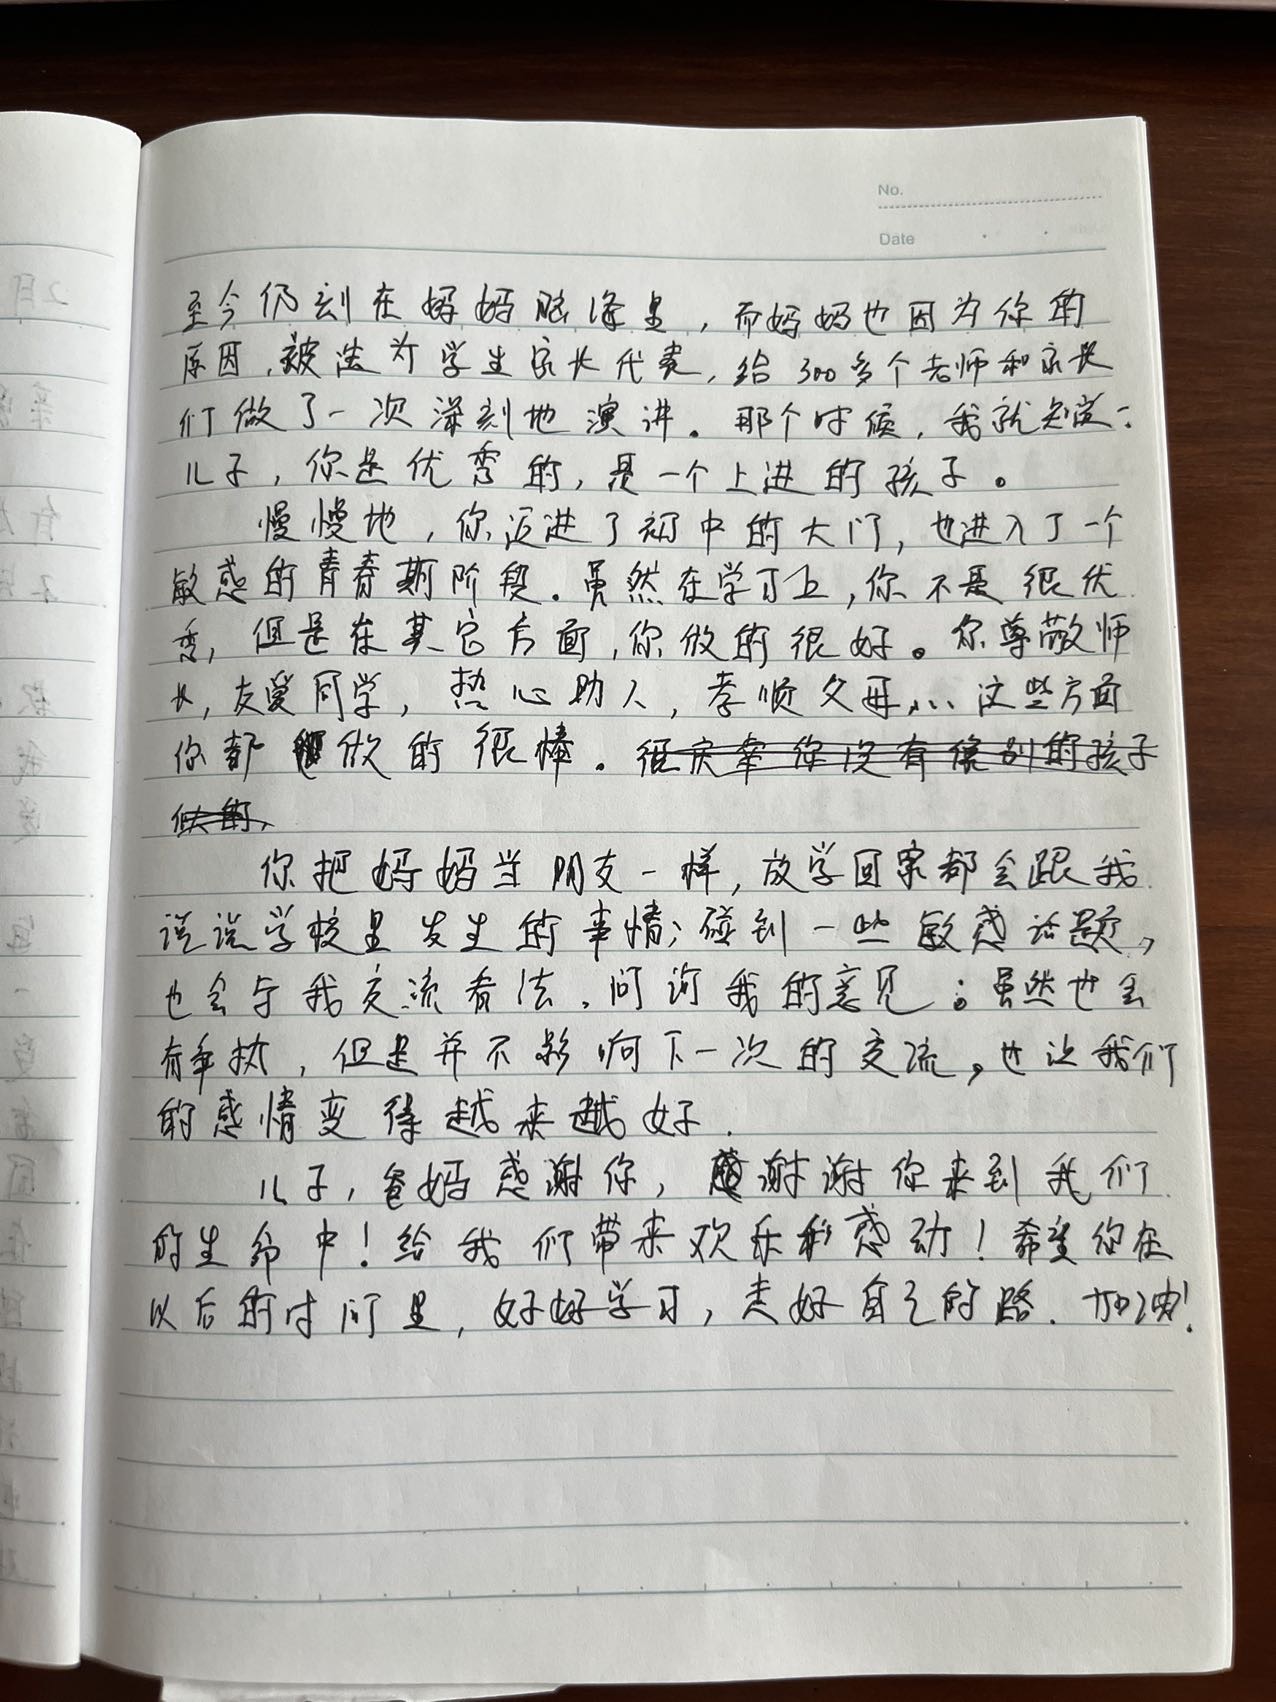 No.
Date
至今仍刻在妈妈脑海里，而妈妈也因为你的
原因，被选为学生家长代表，给300多个老师和家长
们做了一次深刻地演讲。那个时候，我就知道：
儿子，你是优秀的，是一个上进的孩子。
慢慢地，你迈进了初中的大门，也进入了一个
敏感的青春期阶段。虽然在学习上，你不是很优
秀，但是在其它方面，你做的很好。你尊敬师
长，友爱同学，热心助人，孝顺父母……这些方面
你都做的很棒。很庆幸你没有像别的孩子
似的，
你把妈妈当朋友一样，放学回家都会跟我
说说学校里发生的事情；碰到一些敏感话题，
也会与我交流看法，问询我的意见；虽然也会
有争执，但是并不影响下一次的交流，也让我们
的感情变得越来越好.
儿子，爸妈感谢你，感谢谢你来到我们
的生命中！给我们带来欢乐和感动！希望你在
以后的时间里，好好学习，走好自己的路.加油！